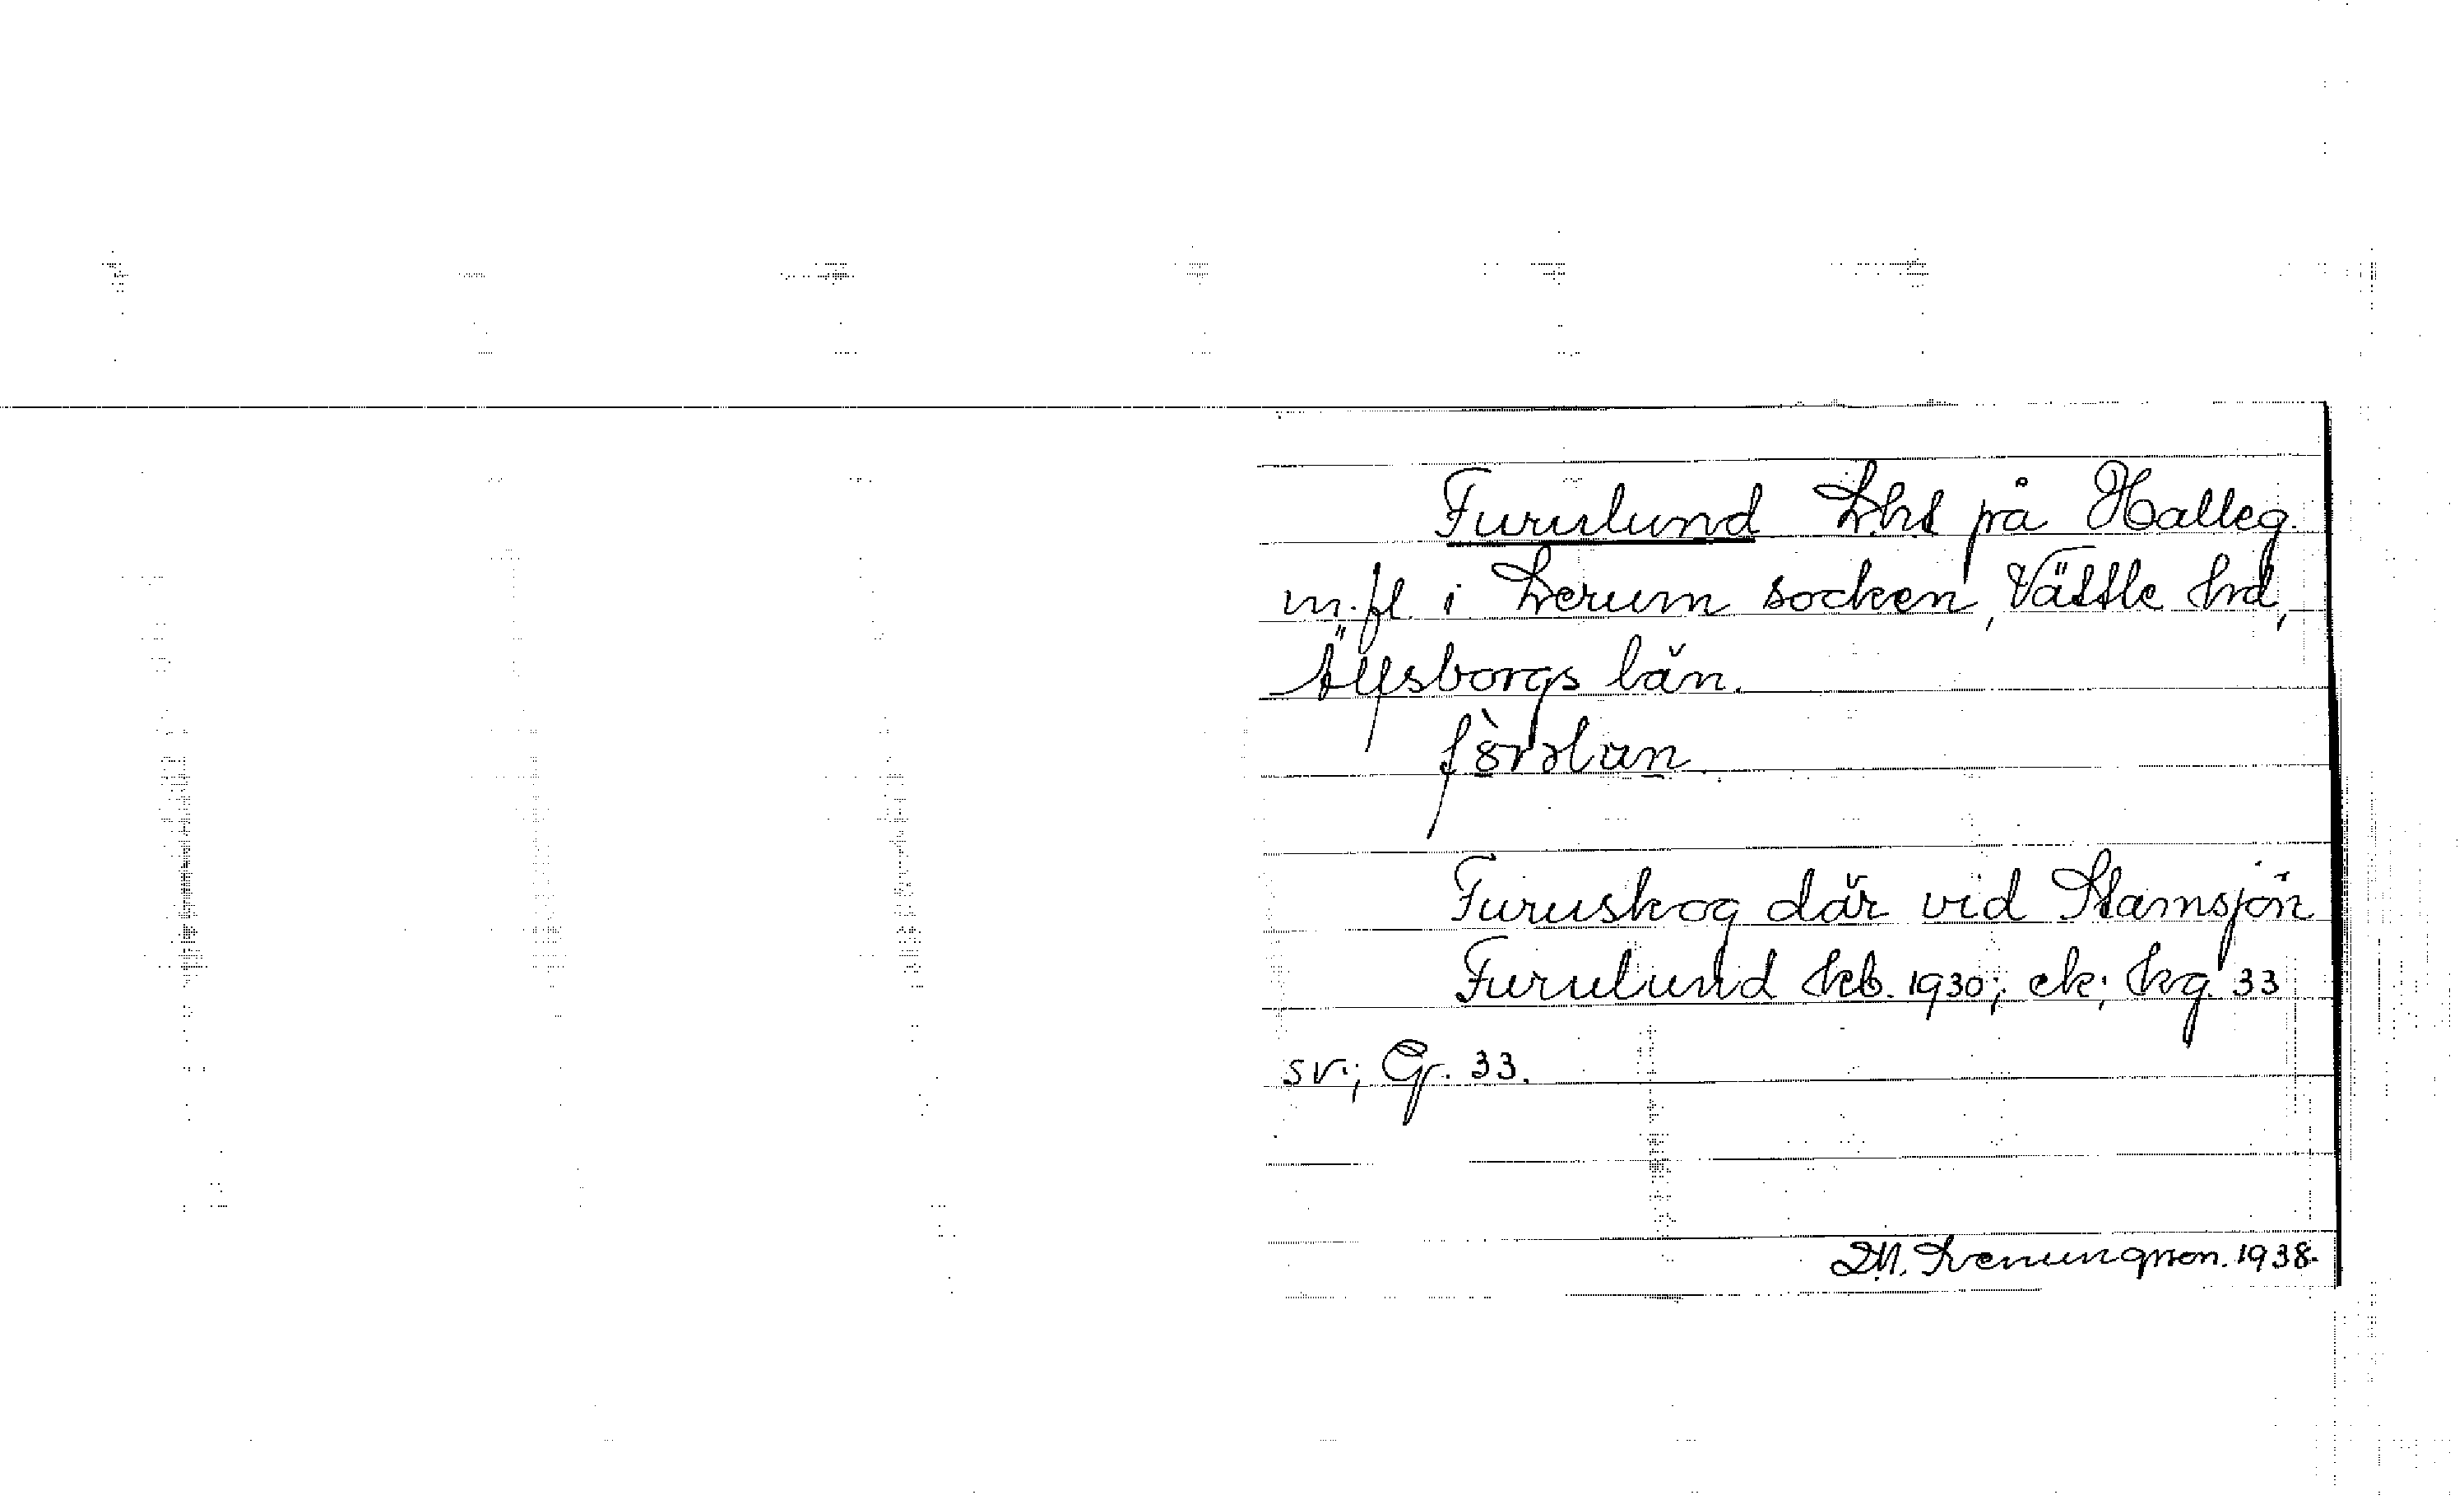 Furulund Lht på Halleg.
m. fl. i Lerum socken, Vättle hd,
Älfsborgs län.
Furuskog där vid Stamsjön
Furulund kb. 1930; ek; kg. 33
sv; Gr. 33.
1938.